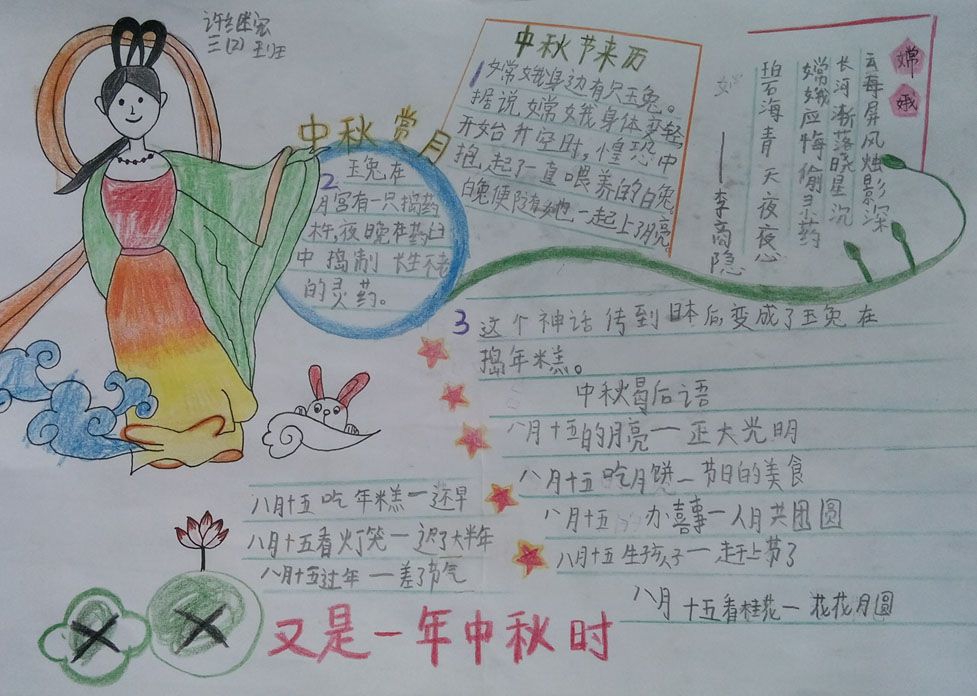 许继宏
三(2)班
中秋节来历
1嫦娥身边有只玉兔。
据说嫦娥身体变轻,
开始升空时,惶恐中
抱起了一直喂养的白兔。
白兔便随着她一起上了月亮。
嫦
娥
云母屏风烛影深
长河渐落晓星沉
嫦娥应悔偷灵药
碧海青天夜夜心
——李商隐
中秋赏月
2玉兔在
月宫有一只捣药
杵,夜晚在药臼
中捣制长生不老
的灵药。
3这个神话传到日本后,变成了玉兔在
捣年糕。
中秋曷后语
八月十五的月亮—正大光明
八月十五吃月饼—节日的美食
八月十五办喜事—人月共团圆
八月十五生孩子—赶上节了
八月十五看桂花—花花月圆
八月十五吃年糕—还早
八月十五看灯笼—迟了大半年
八月十五过年—差了节气
又是一年中秋时